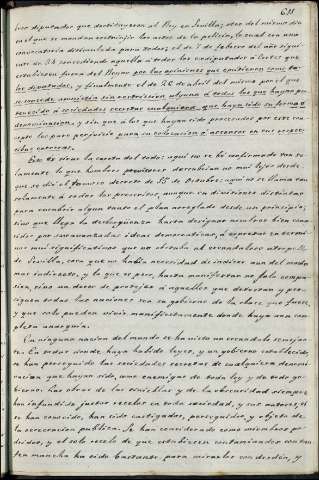 638
los diputados que destituyeron al Rey en Sevilla; otra del mismo dia
en el que se mandan restringir los actos de la policia, la cual era una
convocatoria disimulada para todos; el de 7 de febrero del año siguiente
de 34 concediendo aquella á todos los exdiputados á Cortes que
estubieren fuera del Reyno por las opiniones que emitieron como ta-
les diputados, y finalmente el de 26 de abril del mismo por el que
se concede amnistia sin restriccion alguna á todos los que hayan per-
tenecido á sociedades secretas cualquiera que haya sido su forma ó
denominacion, y sin que á los que hayan sido procesados por este con-
cepto les pare perjuicio para su colocacion ó ascenso en sus respec-
tibas carreras.
Este es el fin la careta del todo: aqui se ve confirmado con so-
lamente lo que hombres previsores descubrian no mui lejos desde
que se dió el famoso decreto de 15 de octubre: aqui no se llama con
solamente á todos los proscritos, aunque en diversos disfraces
para cumplir algun tanto el plan arreglado desde un principio;
sino que llega la desvergüenza hasta designar nombres bien cono-
cidos por sus avanzadas ideas democraticas, ó expresar en termi-
nos mui significativos que no obstaba el escandaloso atropello
de Sevilla, cosa que no habia necesidad de indicar aun del modo
mas indirecto, y lo que es peor, hasta manifestar no solo compa-
sion, sino un deseo de proteger á aquellos que detestan y per-
siguen todas las naciones sea su gobierno de la clase que fuere,
y que solo pueden vivir manifiestamente donde haya una com-
pleta anarquia.
En ninguna nacion del mundo se ha visto un escandalo semejan-
te. En todas donde haya habido leyes, y un gobierno establecido
se han perseguido las sociedades secretas de cualquiera denomi-
nacion que hayan sido, como enemigas de toda ley y de todo go-
bierno. Las obras de las tinieblas y de la obscuridad siempre
han infundido justos recelos en toda sociedad, y sus autores, si
se han conocido, han sido castigados, perseguidos, y objeto de
la execracion publica. Se han considerado como miembros po-
dridos, y el solo recelo de que estubiesen contaminados con es-
ta mancha ha sido bastante para mirarlos con desden, y